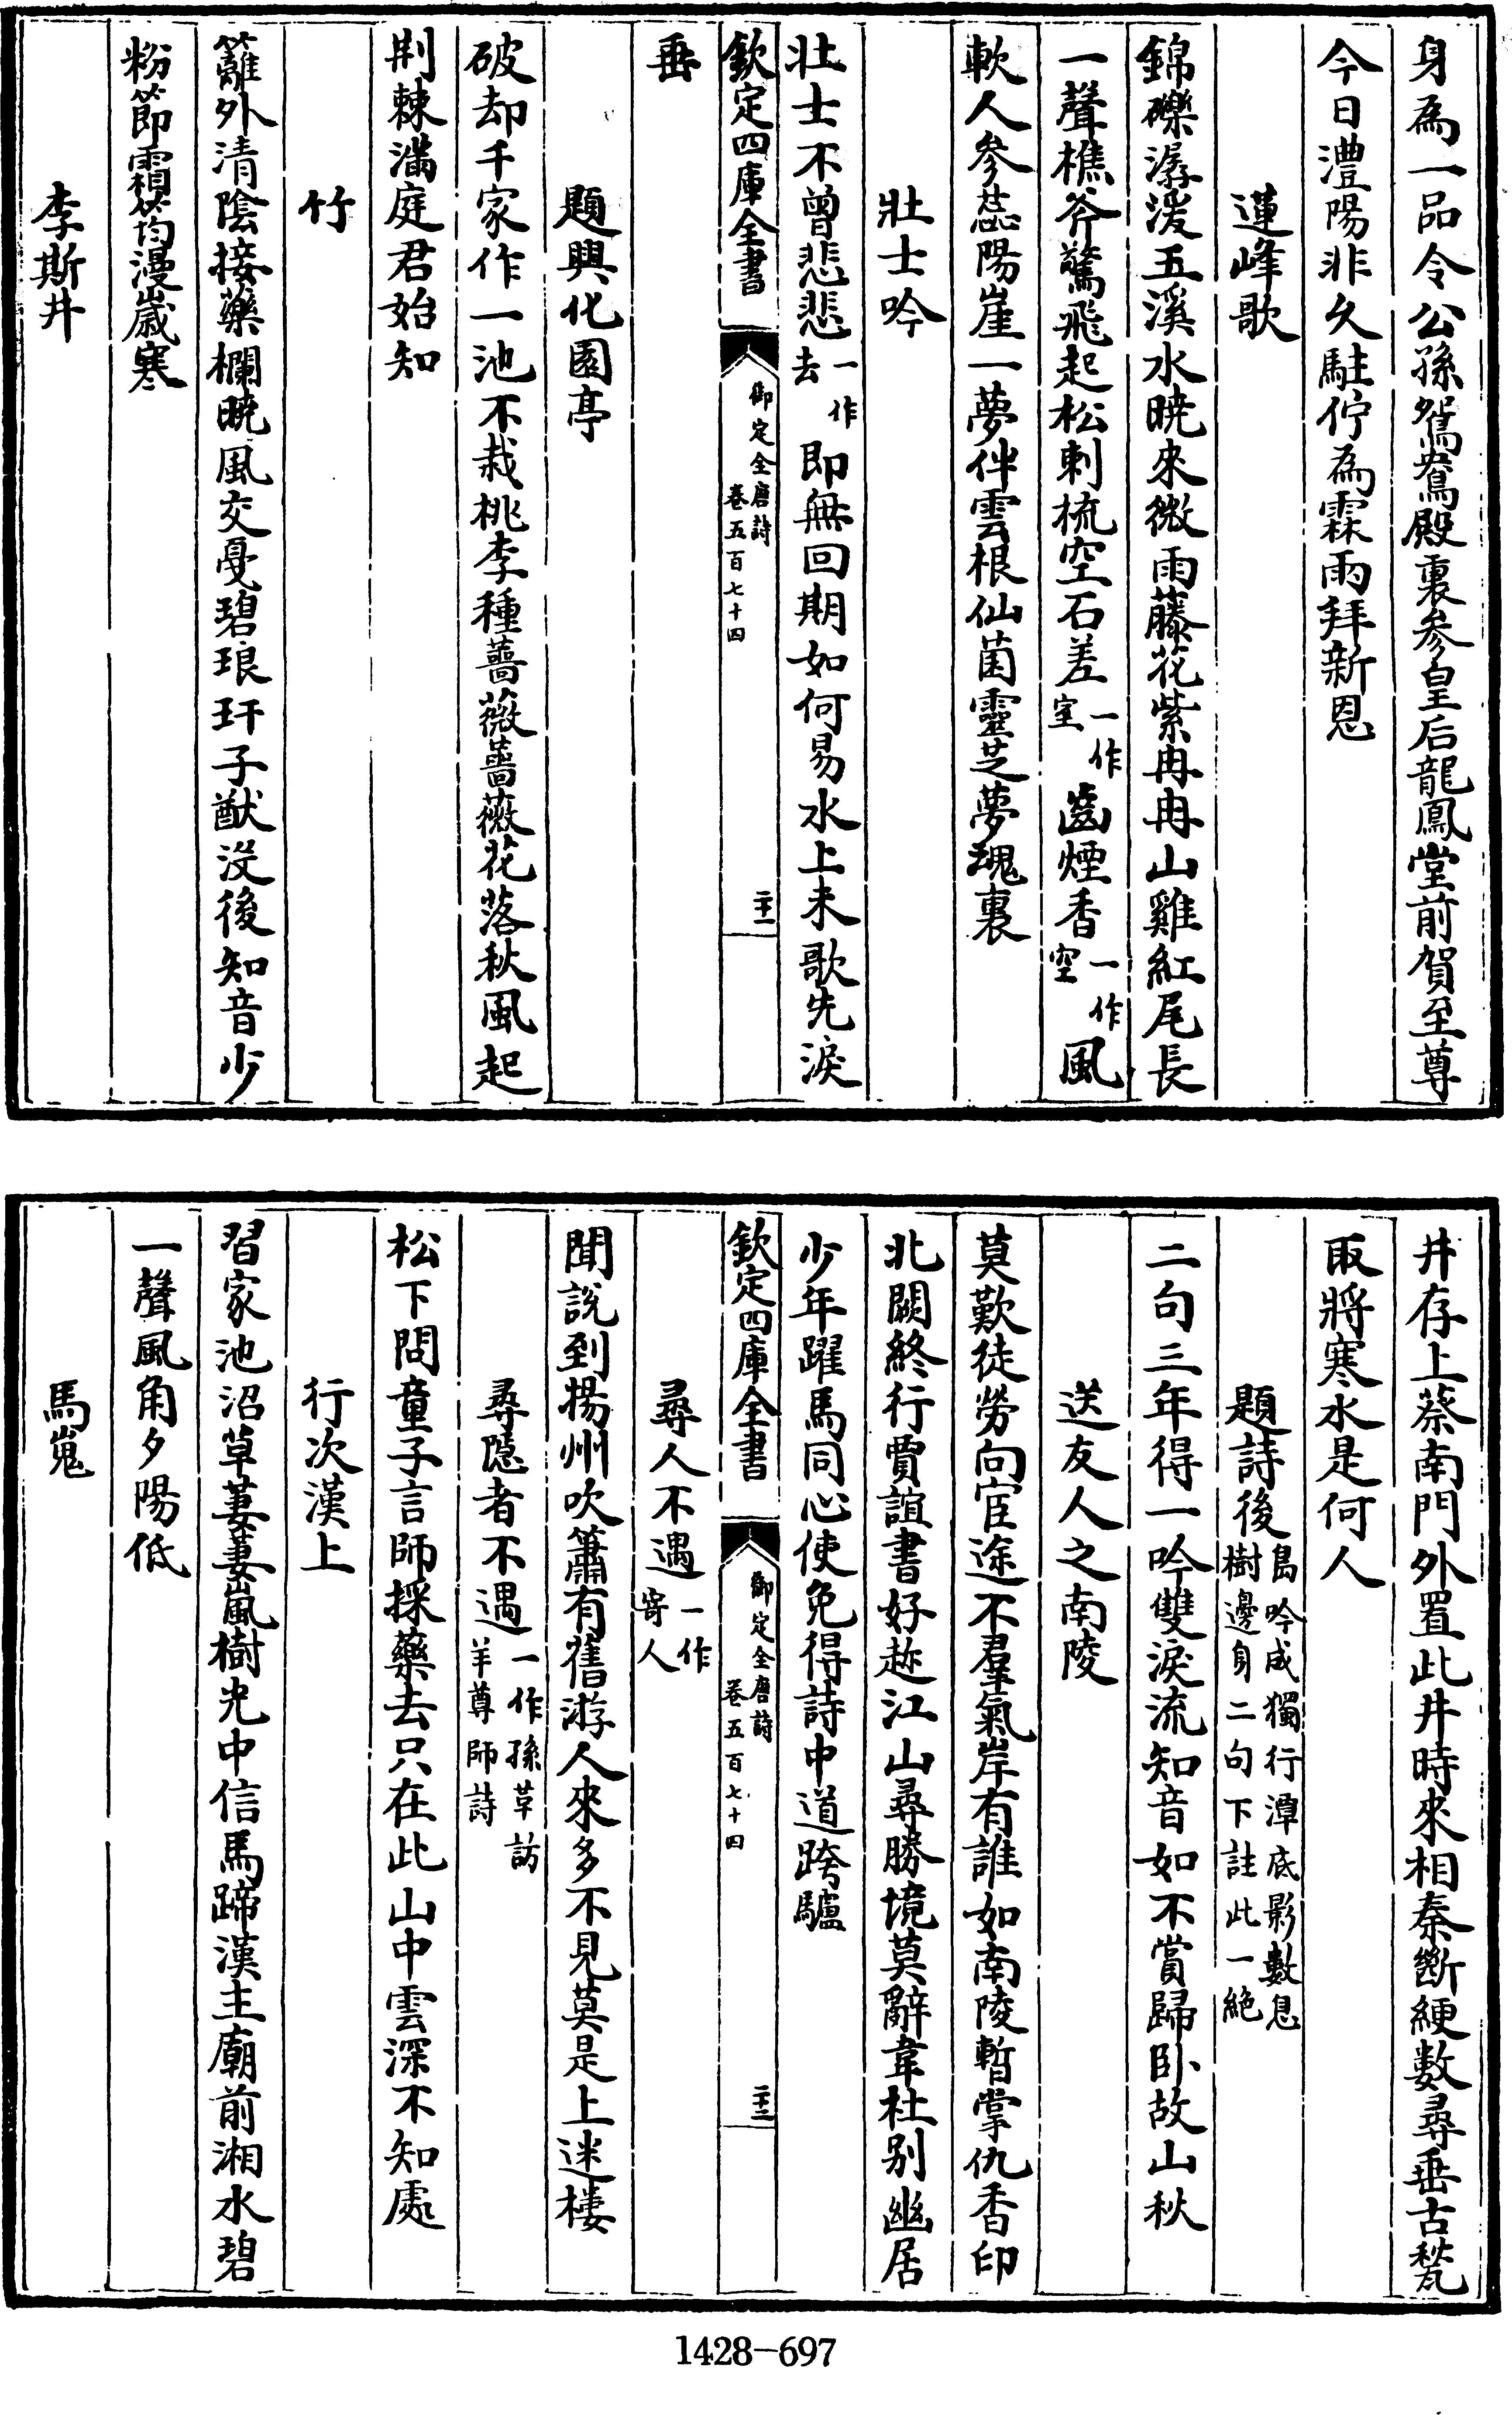 身為一品令公孫鴛鴦殿裏參皇后龍鳳堂前賀至尊
今日澧陽非久駐佇為霖雨拜新恩
蓮峰歌
錦礫潺湲五溪水曉來微雨藤花紫冉冉山雞紅尾長
一聲樵斧驚飛起松剌梳空石差一作室齒煙香一作空風
軟人參蕊陽崖一夢伴雲根仙菌靈芝夢魂裏
壯士吟
壯士不曾悲悲一作去即無回期如何易水上未歌先淚
欽定四庫全書
御定全唐詩
卷五百七十四
二十一
垂
題興化園亭
破却千家作一池不栽桃李種薔薇薔薇花落秋風起
荆棘滿庭君始知
竹
籬外清陰接藥欄曉風交戞碧琅玕子猷沒後知音少
粉節霜筠漫歲寒
李斯井
井存上蔡南門外置此井時來相秦斷綆數尋垂古甃
取將寒水是何人
題詩後島吟成獨行潭底影數息樹邊身二句下註此一絶
二句三年得一吟雙淚流知音如不賞歸卧故山秋
送友人之南陵
莫歎徒勞向宦途不羣氣岸有誰如南陵暫掌仇香印
北闕終行賈誼書好趂江山尋勝境莫辭韋杜别幽居
少年躍馬同心使免得詩中道跨驢
欽定四庫全書
御定全唐詩
卷五百七十四
二十二
尋人不遇一作寄人
聞説到揚州吹簫有舊游人來多不見莫是上迷樓
尋隱者不遇一作孫革訪羊尊師詩
松下問童子言師採藥去只在此山中雲深不知處
行次漢上
習家池沼草萋萋嵐樹光中信馬蹄漢主廟前湘水碧
一聲風角夕陽低
馬嵬
1428-697